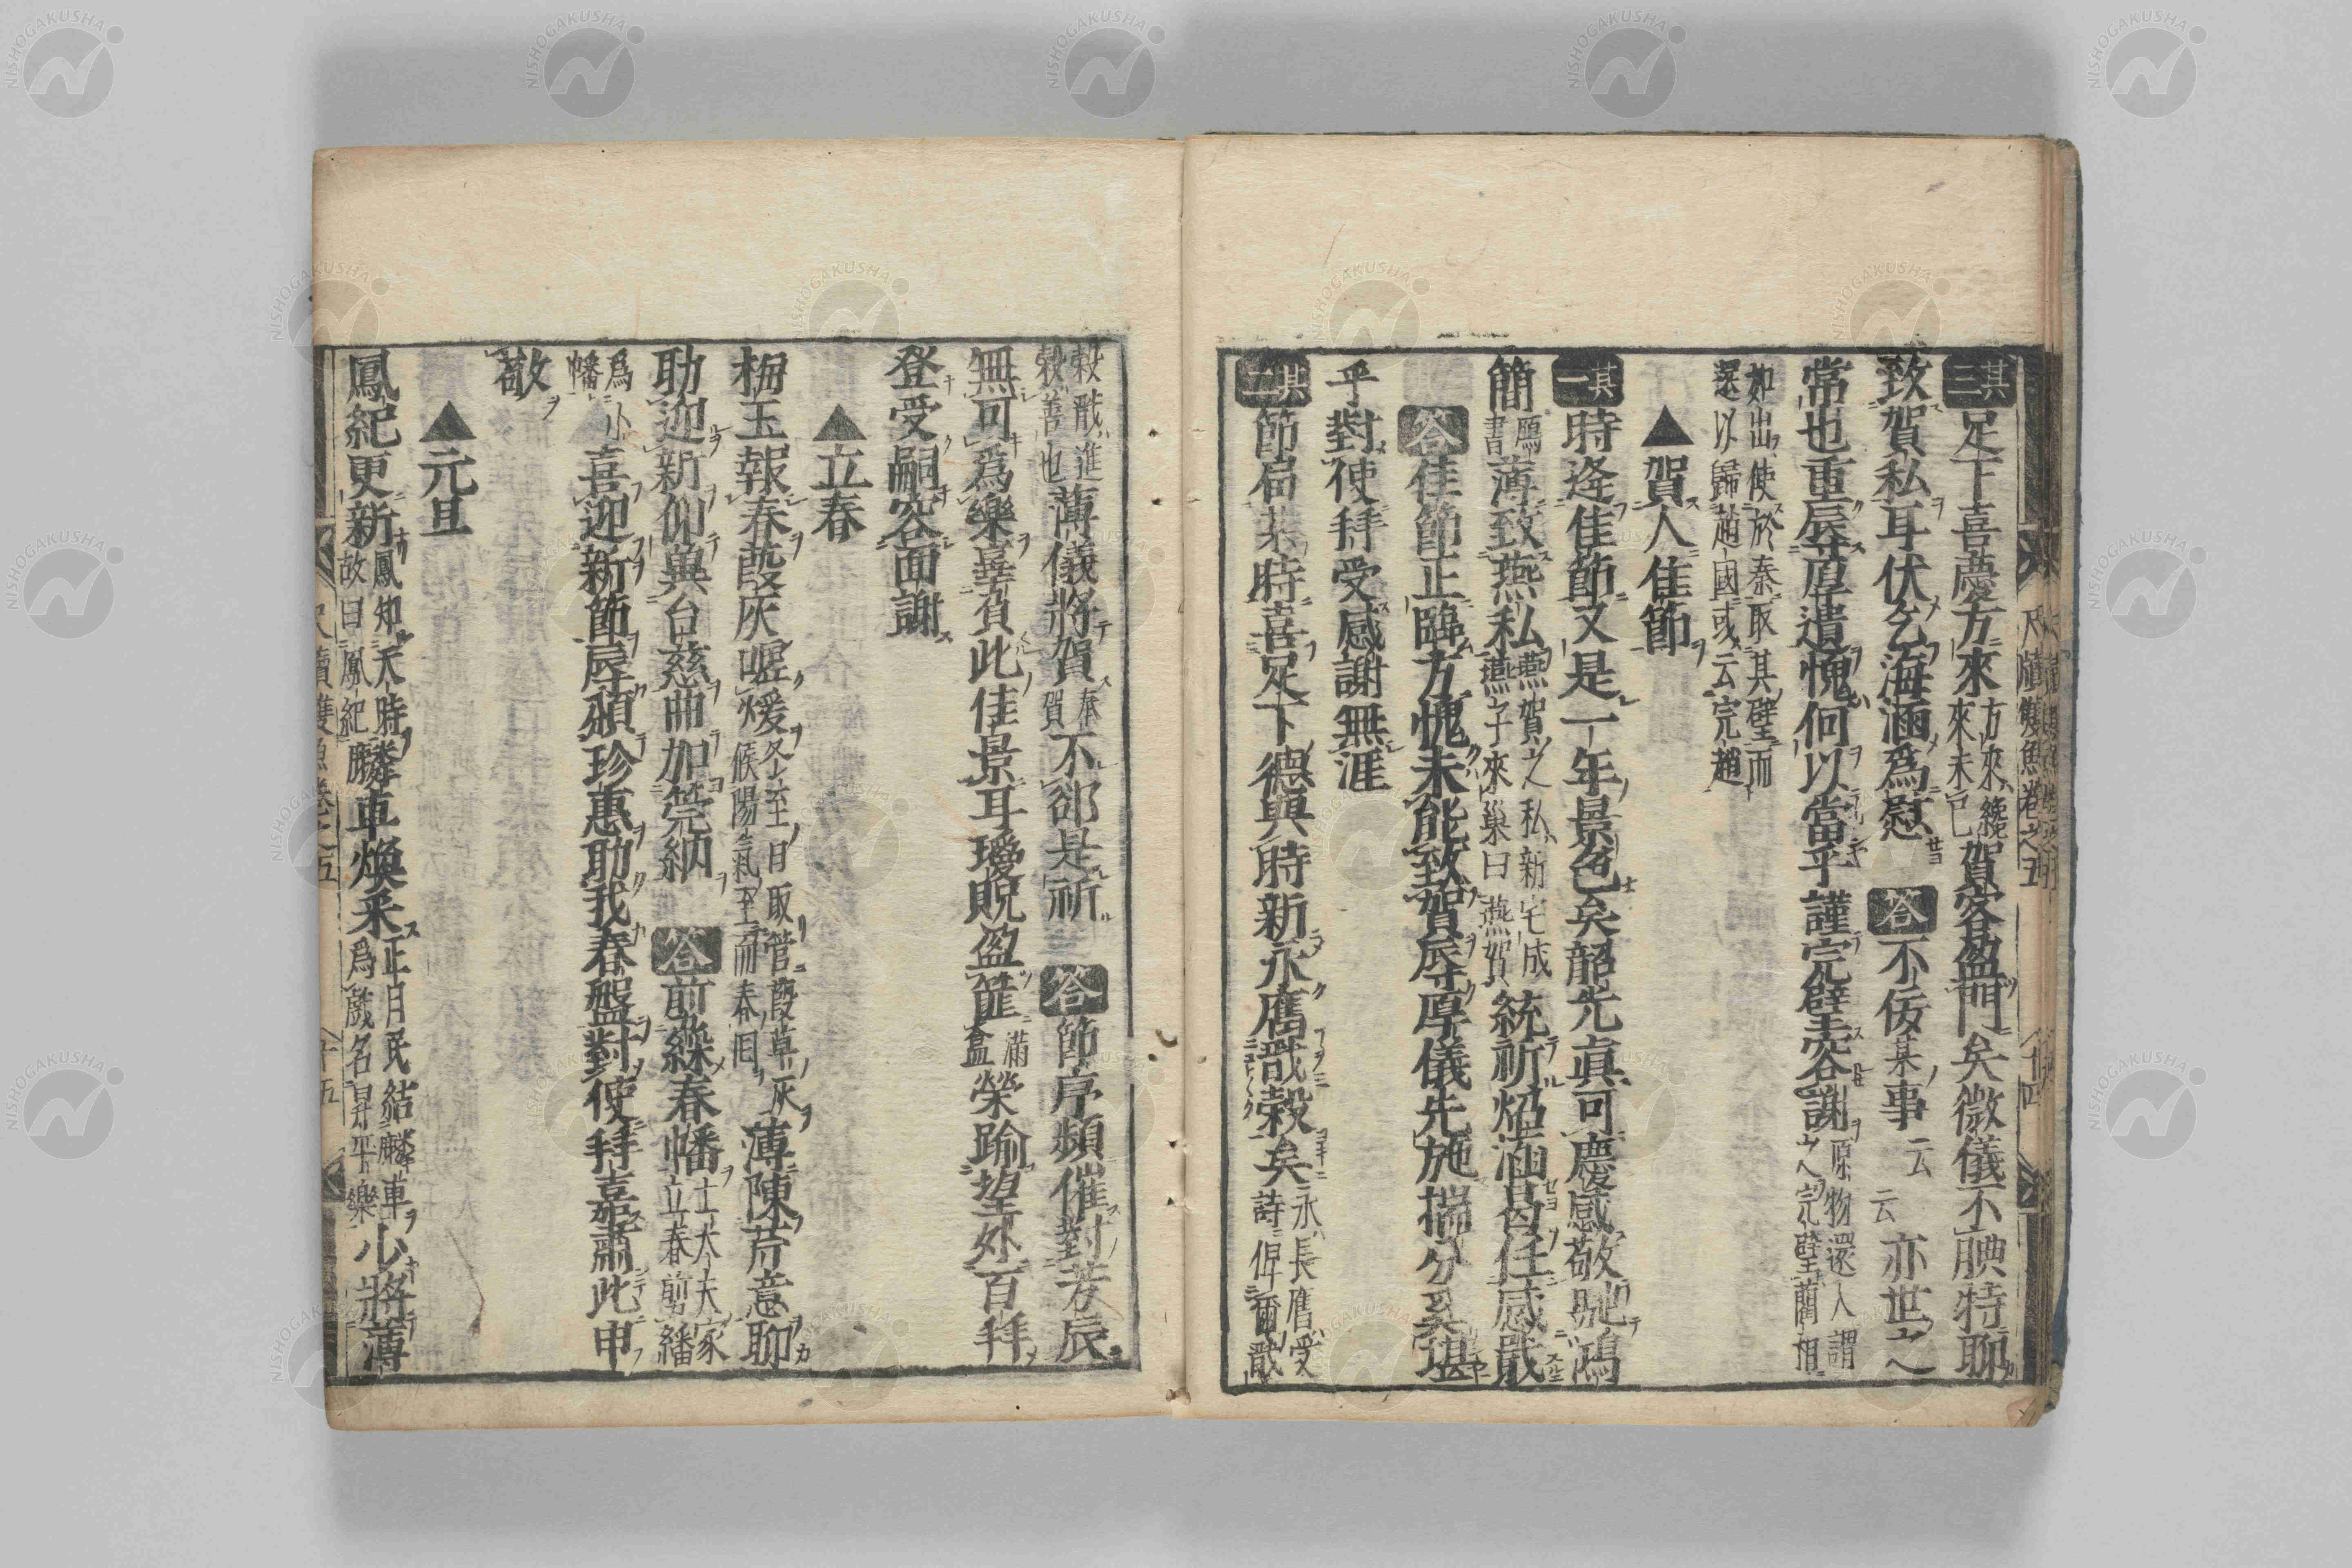 其三足下喜慶方來方來纔來未已賀客盈門矣微儀不腆特聊
致賀私耳伏乞海涵爲慰答不佞某事云云亦世之
常也重辱厚遺愧何以當乎謹完璧容謝原物還人謂之完璧藺相
如出使於秦取其璧而還以歸趙國或云完趙
▲賀人佳節
其一時逄佳節又是一年景色矣韶光眞可慶感敬馳鴻
簡鴈書薄致燕私燕賀之私新宅成燕子來巢曰燕賀統祈炤涵曷任感戢
答佳節正臨方愧未能致賀辱厚儀先施揣分奚堪
乎對使拜受感謝無涯
其二節届某時喜足下德與時新永膺戩穀矣永長膺受詩俾爾戩
穀戩進穀善也薄儀將賀奉賀不郤是祈答節序頻催對芳辰
無可爲樂喜有此佳景耳璦貺盈篚滿盒榮踰望外百拜
登受嗣容面謝
▲立春
梅玉報春葭灰嘘煖冬至日取管葭草灰候陽氣至而春囘薄陳芹意聊
助迎新仰與台慈曲加筦納答前綵春幡士大夫家立春剪繙
爲小幡喜迎新節辱頒珍惠助我春盤對使拜嘉肅此申
敬
▲元旦
鳳紀更新鳳知天時故曰鳳紀麟車煥釆正月民結麟車爲戲名昇平樂少將薄
尺牘雙魚卷之五
十四
十五
NISHOGAKUSHA